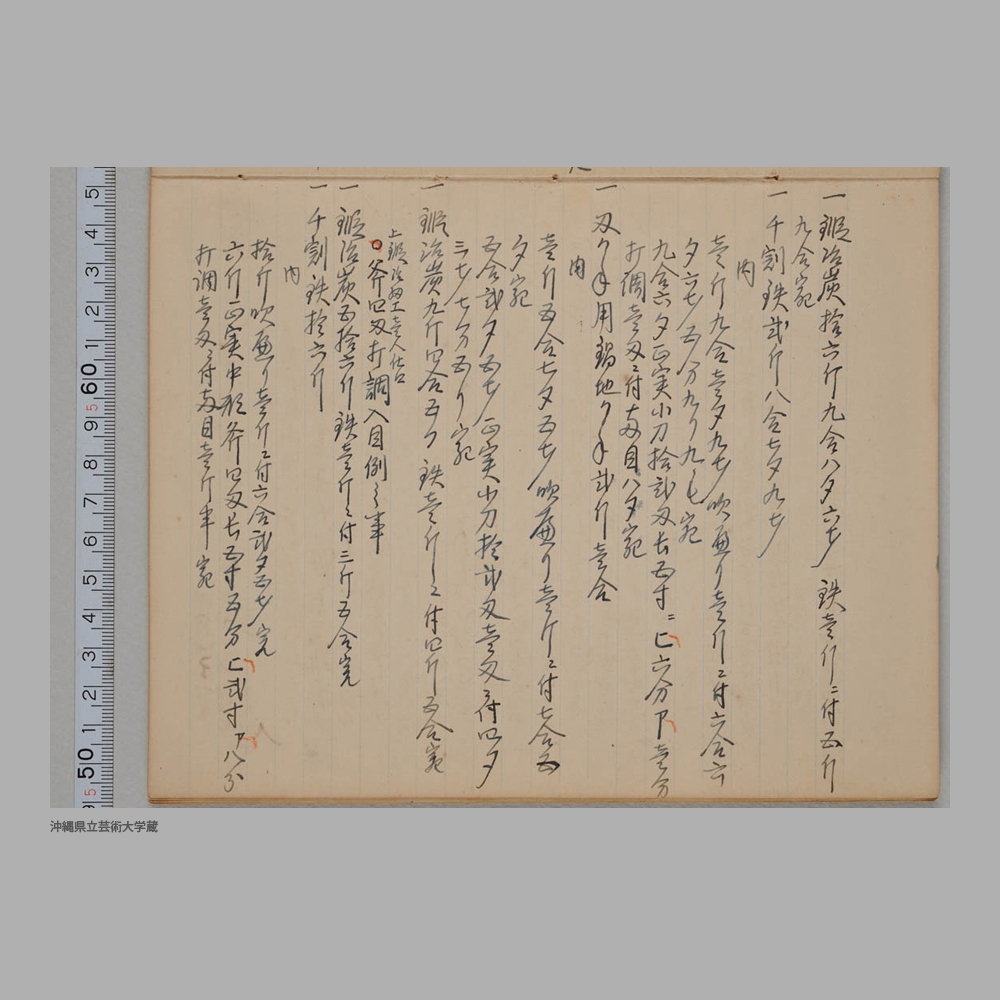 一 鍛冶炭拾六斤九合八夕六才 鉄壱斤ニ付五斤
九合宛
一 千割鉄弐斤八合七夕九才
内
壱斤九合壱夕九才吹減り壱斤ニ付六合六
夕六才五分九り九毛宛
九合六夕正実小刀拾弐刃長五寸ニヒ六分ア壱分
打調壱刃ニ付本目八夕宛
一 刃かね用鍋地かね弐斤壱合
内
壱斤五合七夕五才吹減り壱斤ニ付七合五
夕宛
五合弐夕五才正実小刀拾弐刃壱刃ニ付四夕
三才七分五り宛
一 鍛冶炭九斤四合五夕 鉄壱斤ニ付四斤五合宛
上鍛冶細工壱人仕口
斧四刃打調入目例之事
一 鍛冶炭五拾六斤 鉄壱斤ニ付三斤五合宛
一 千割鉄拾六斤
内
拾斤吹減り壱斤ニ付六合弐夕五才宛
六斤正実中形斧四刃長五寸五分ヒ弐寸ア八分
打調壱刃ニ付本目壱斤半宛
5 4 3 2 1 60 9 8 7 6 5 4 3 2 1 50
沖縄県立芸術大学蔵